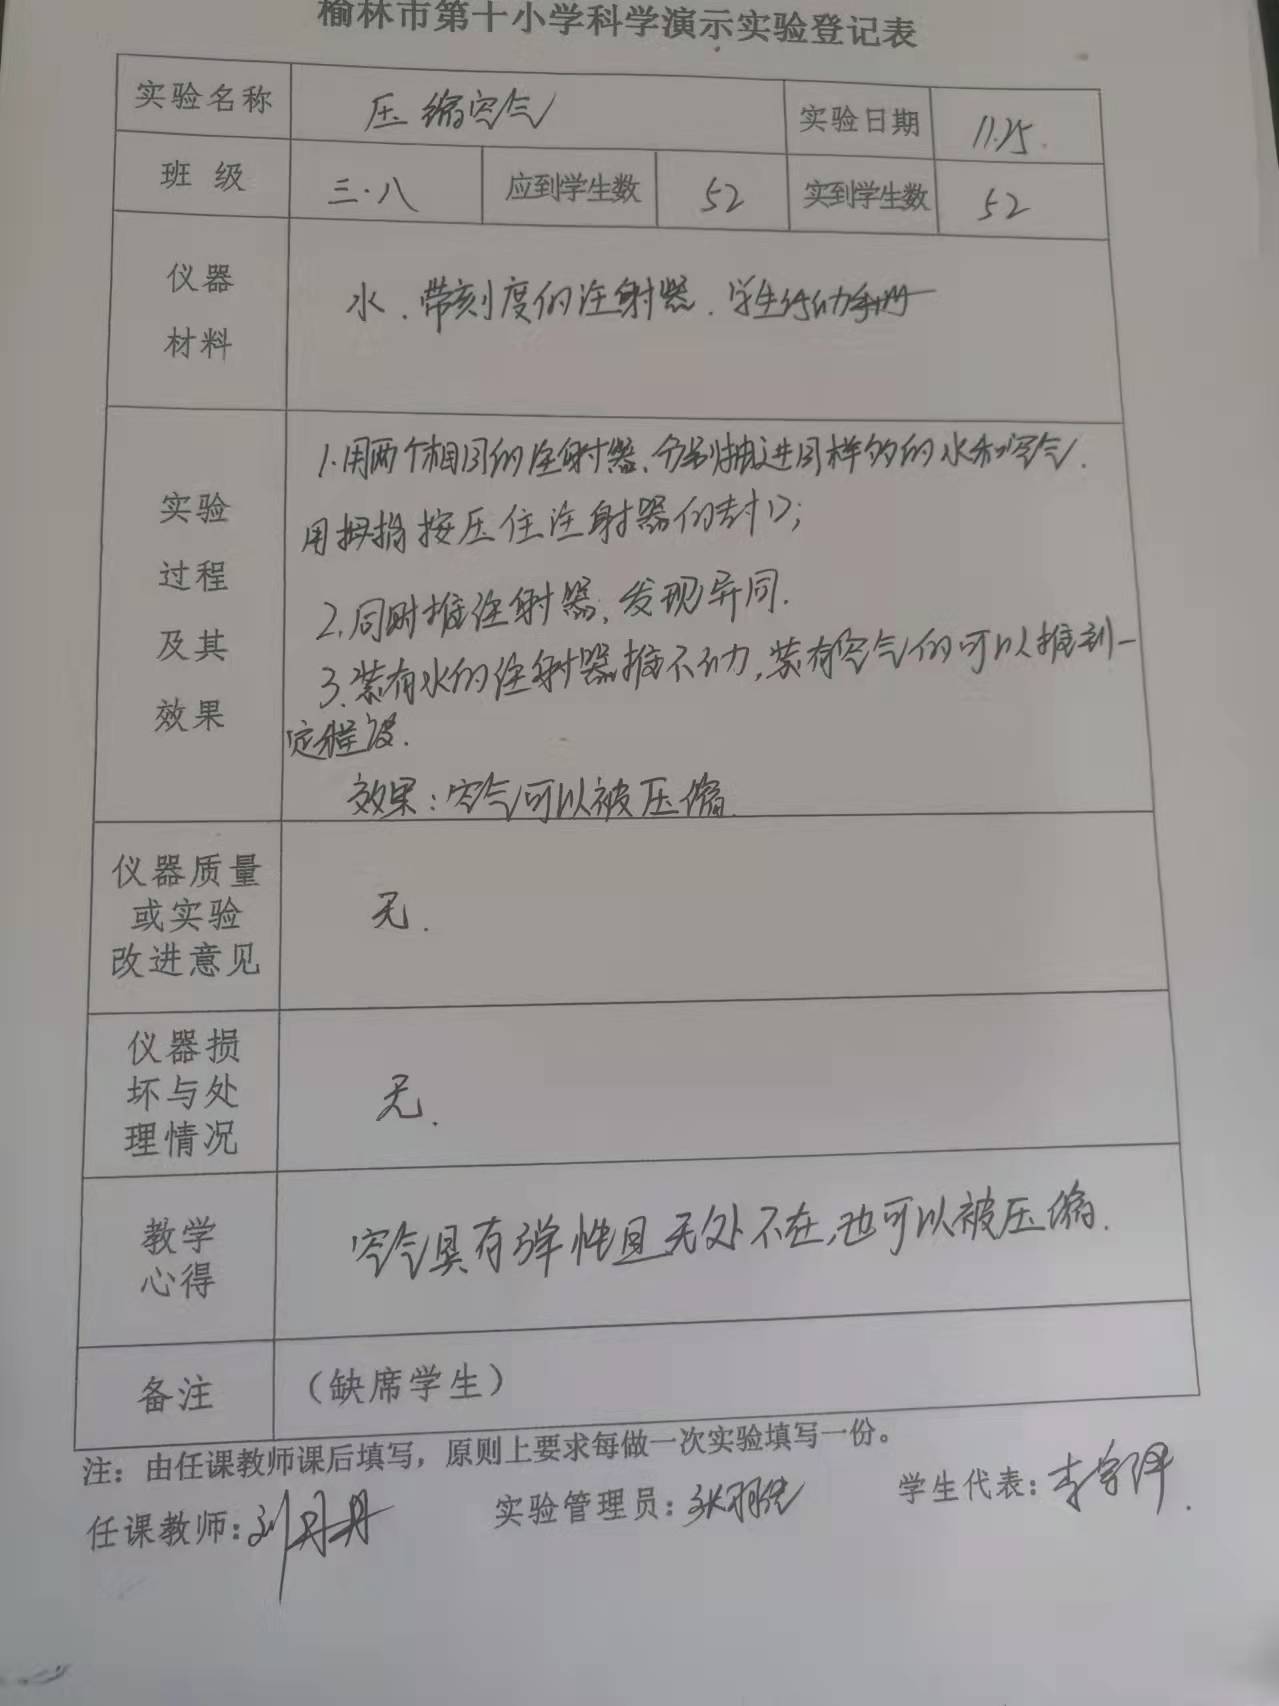 榆林市第十小学科学演示实验登记表
实验名称 压缩空气 实验日期 11.25.
班 级 三.八 应到学生数 52 实到学生数 52
仪器
材料
水.带刻度的注射器.学生活动手册
实验
过程
及其
效果
1.用两个相同的注射器.分别抽进同样多的水和空气.
用拇指按压住注射器的封口;
2.同时推注射器,发现异同.
3.装有水的注射器推不动,装有空气的可以推到一
定程度.
效果:空气可以被压缩.
仪器质量
或实验
改进意见
无.
仪器损
坏与处
理情况
无.
教学
心得
空气具有弹性且无处不在,也可以被压缩.
备注 (缺席学生)
注:由任课教师课后填写,原则上要求每做一次实验填写一份。
任课教师:刘丹丹 实验管理员: 学生代表: